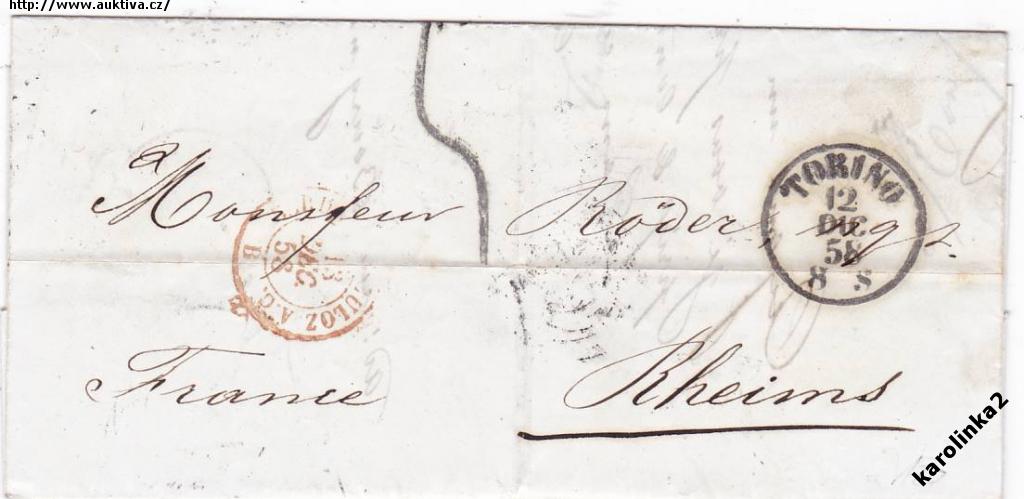 http://www.auktiva.cz/
TORINO
12
DIC
58
8 S
Monsieur Röder,
13
DEC
58
ULOZ A.C.
B
France Rheims
karolinka2